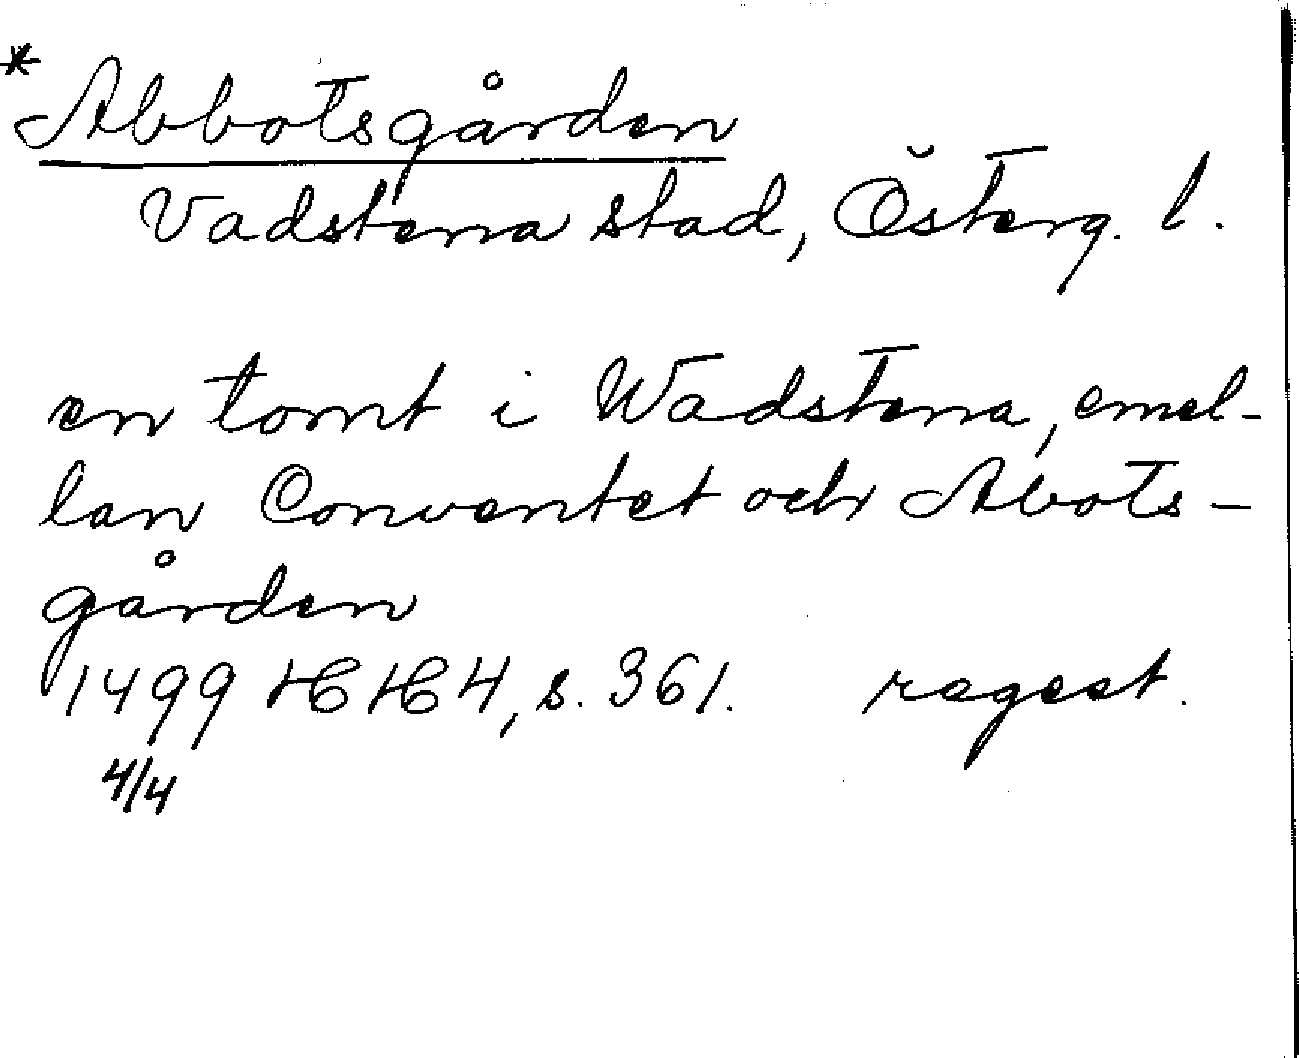 * Abbotsgården
Vadstena stad, Österg. l.
en tomt i Wadstena, emel-
lan Conventet och Abots-
gården
1499 HH 4, s. 361. regest.
4/4